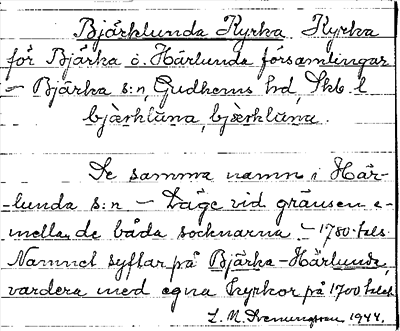 Bjärklunda Kyrka. Kyrka
för Bjärka o. Härlunda församlingar
— Bjärka s:n, Gudhems hd, Skb. l.
bjärklūna, bjærklūna.
Se samma namn i Här-
-lunda s:n — Läge vid gränsen e-
mellan de båda socknarna. — 1780-tals
Namnet syftar på Bjärka-Härlunda,
vardera med egna kyrkor på 1700 talet
1944.